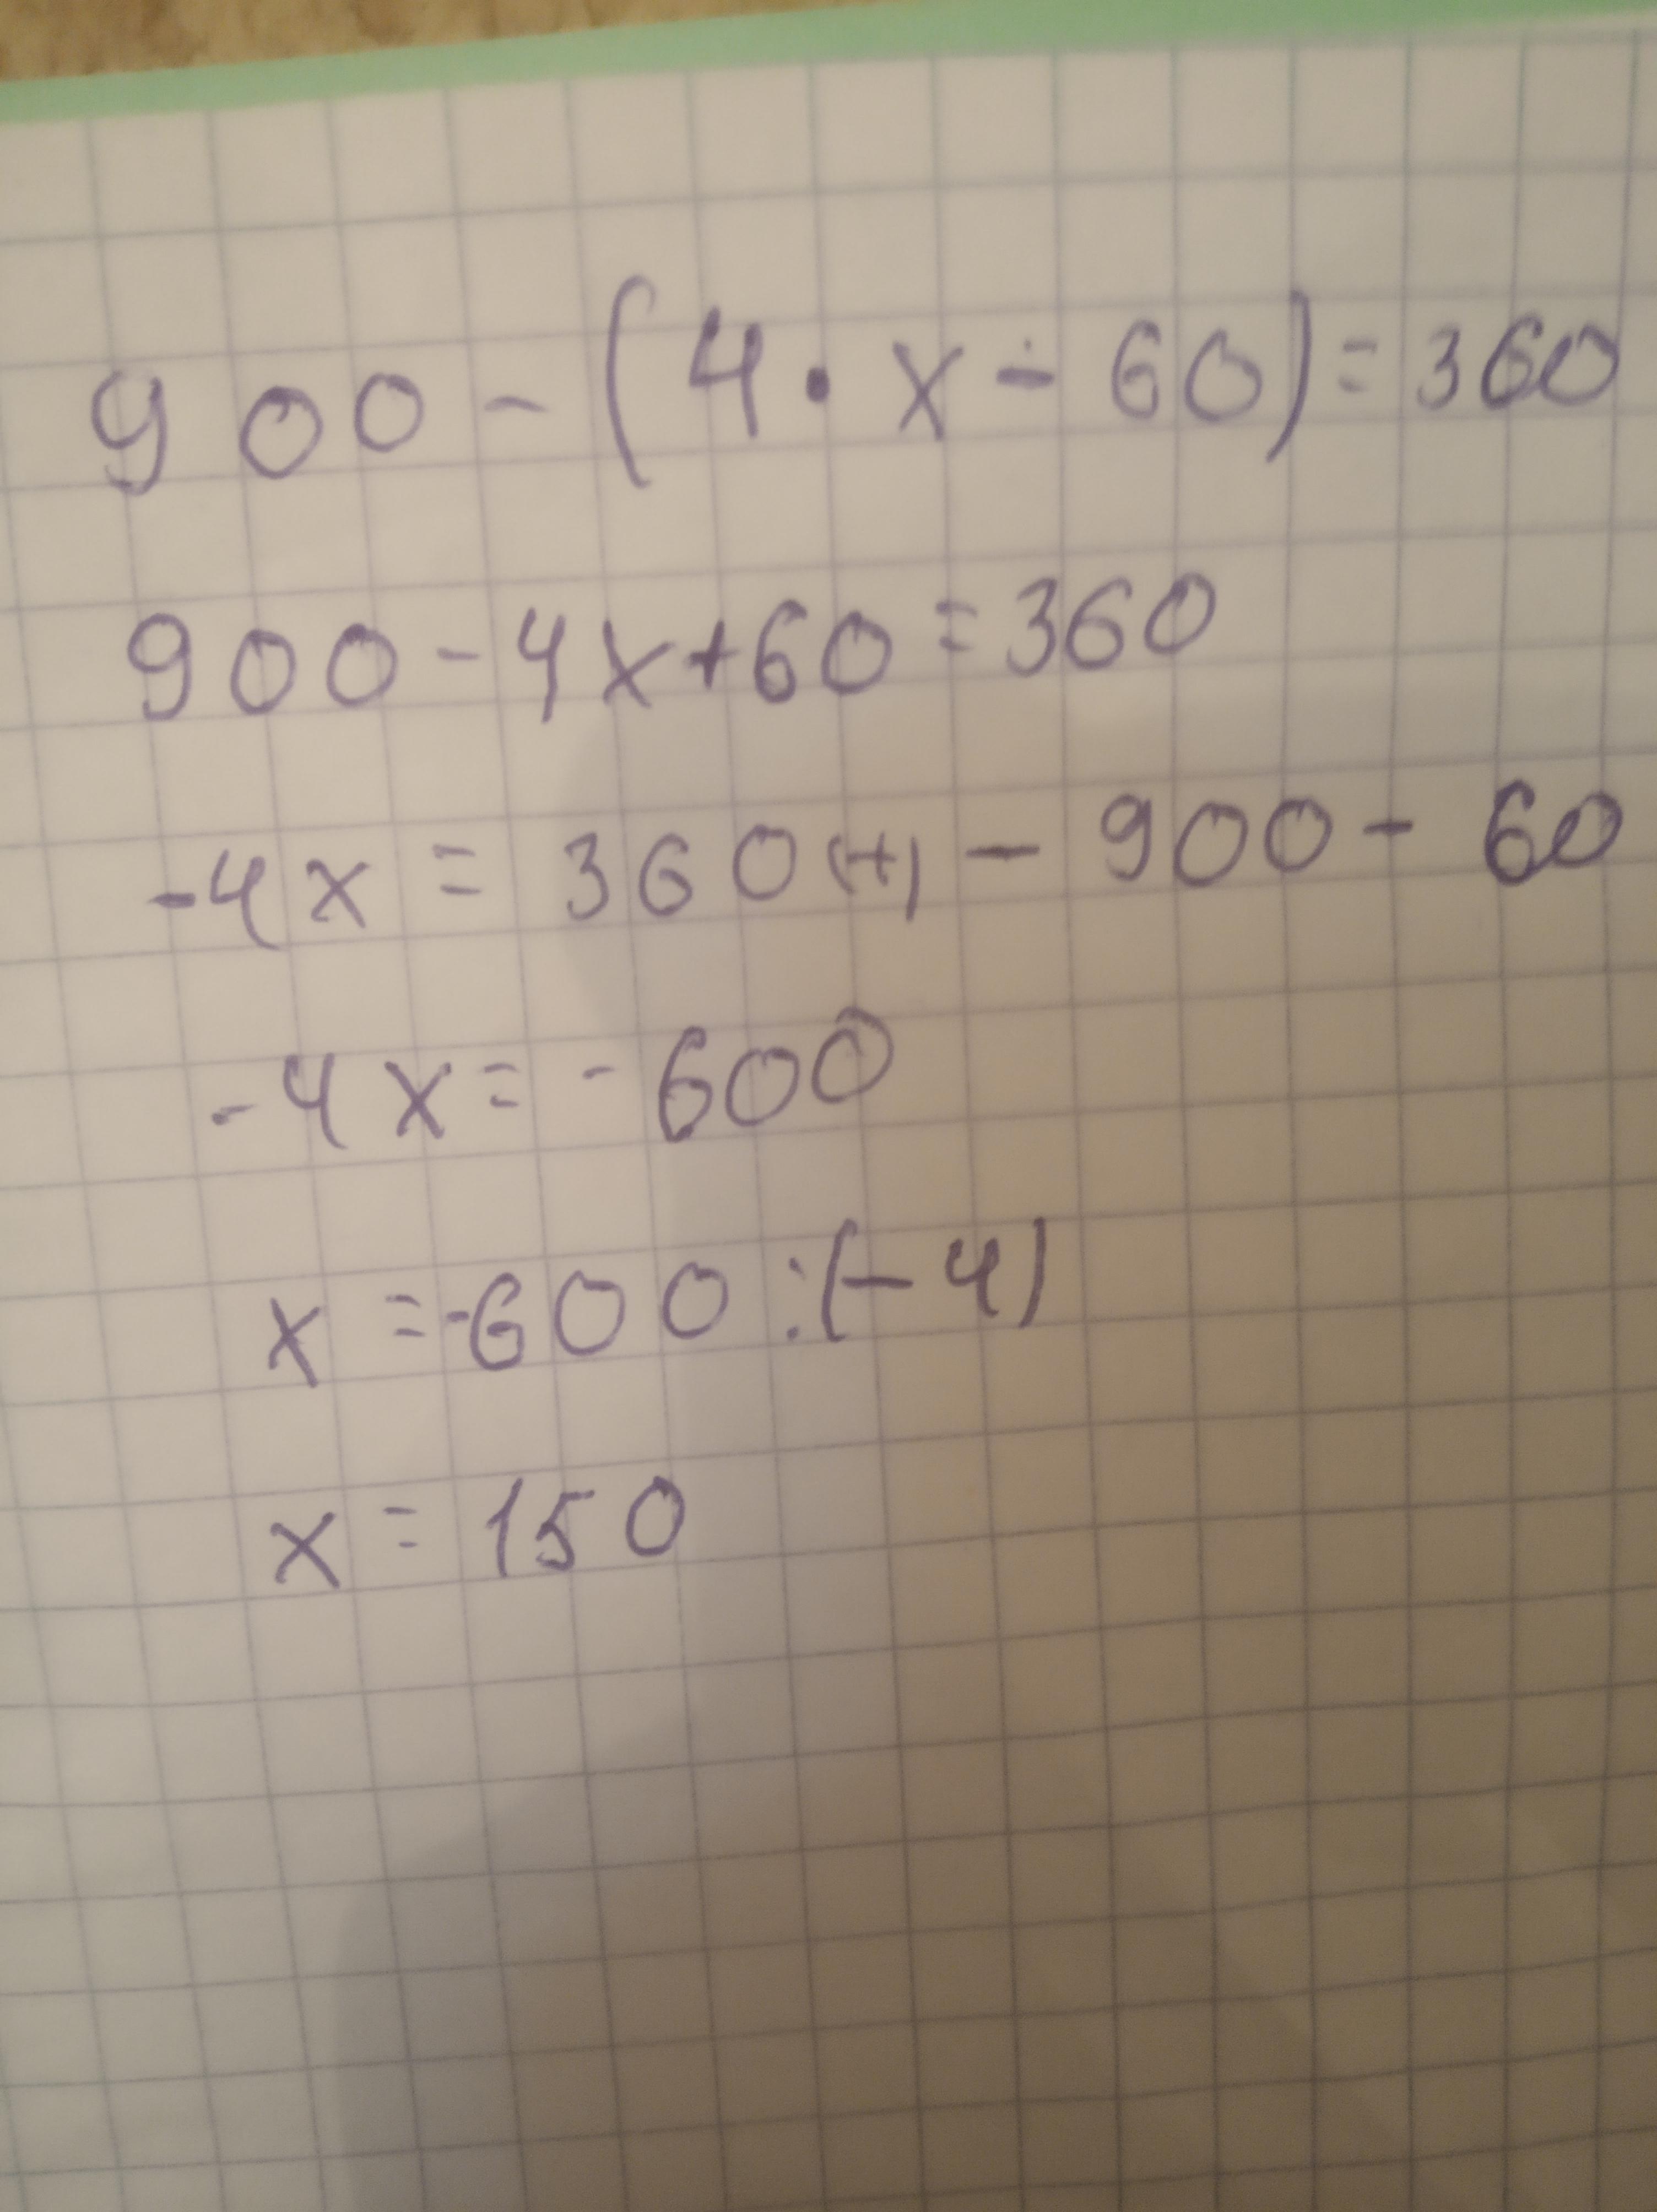 900 - (4 · x - 60) = 360
900 - 4x + 60 = 360
-4x = 360 (+) - 900 - 60
-4x = -600
x = -600 : (-4)
x = 150